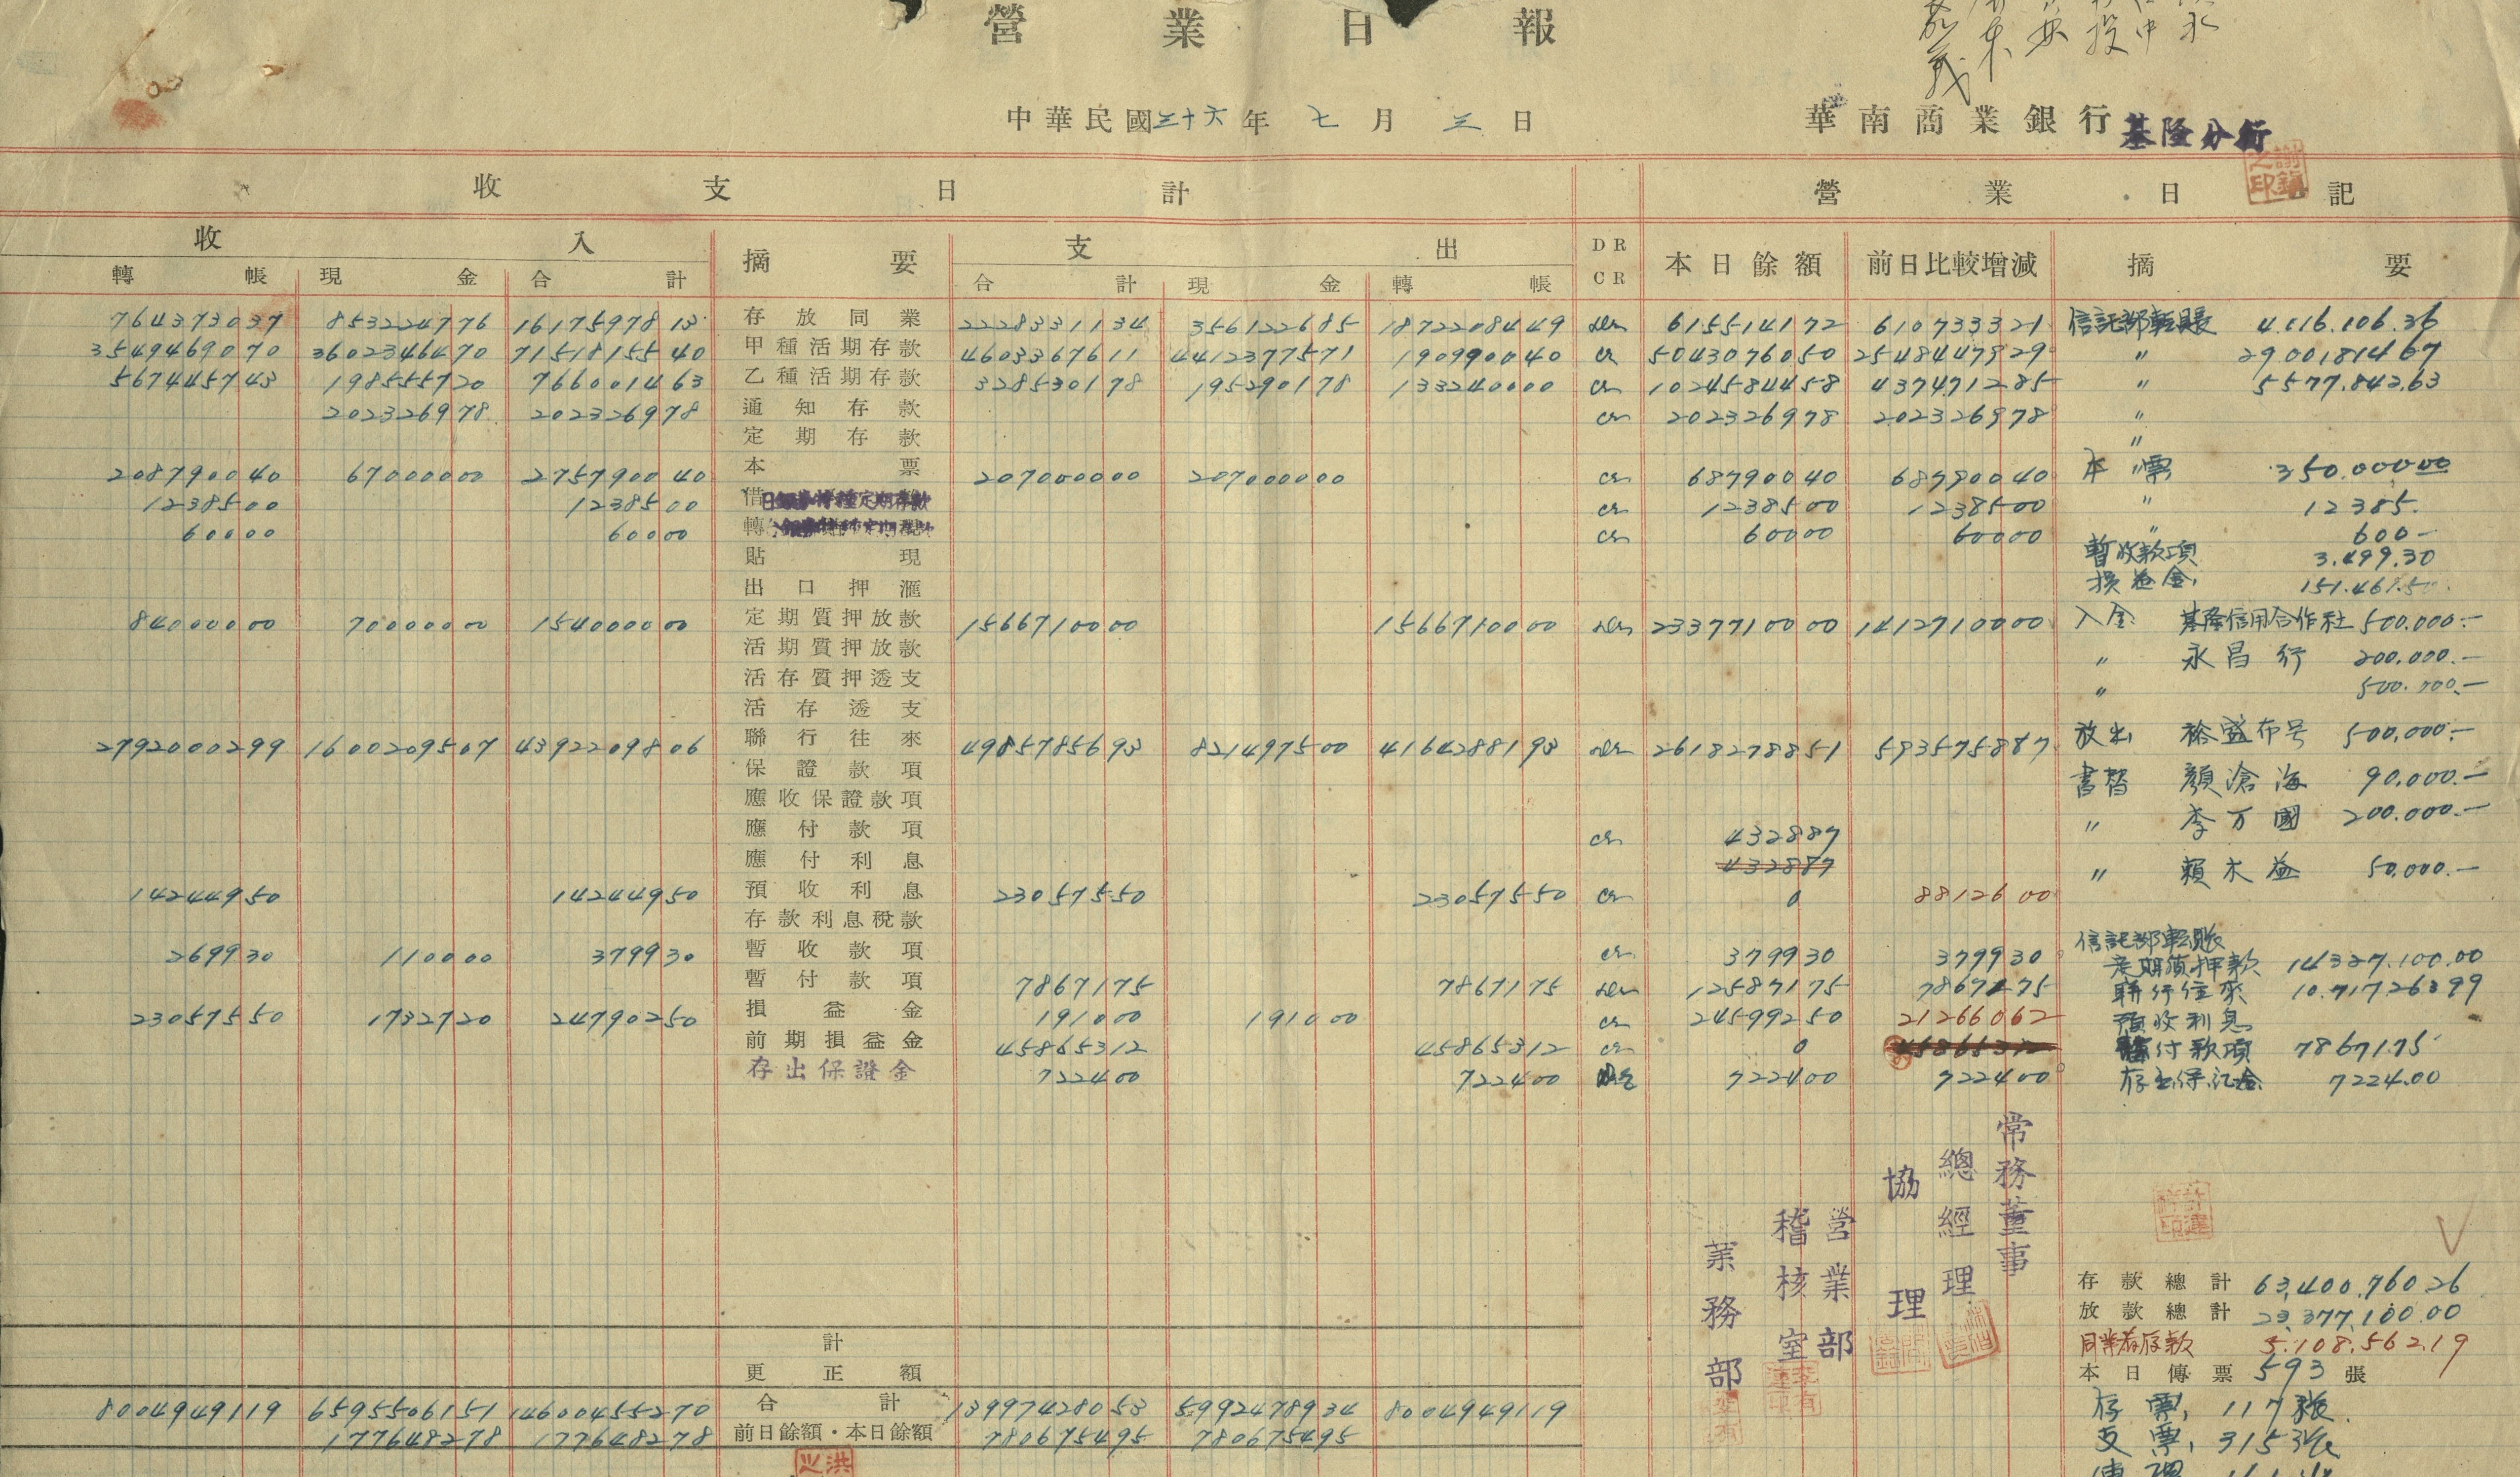 營業日報
中華民國三十六年七月三日 華南商業銀行基隆分行
收支日計 營業日記
收入 摘要 支出 DR CR 本日餘額 前日比較增減 摘要
轉帳 現金 合計 合計 現金 轉帳
764373037 853224776 1617597813 存放同業 2228331134 356122685 1872208449 615514172 610733321 信託部転賬 4.116.106.36
3549469070 3602346470 7151815540 甲種活期存款 4603367611 4412377571 190990040 cr 5043076050 2548447929 〃 29.001814.67
567445743 198555720 766001463 乙種活期存款 328530178 195290178 133240000 cr 1024584458 437471285 〃 5577.842.63
202326978 202326978 通知存款 cr 202326978 202326978 〃
定期存款 〃
208790040 67000000 275790040 本票 207000000 207000000 cr 68790040 68790040 本票 350.000.00
1238500 1238500 cr 1238500 1238500 〃 12385.
60000 60000 cr 60000 60000 〃 600-
貼現 暫收款項 3.499.30
出口押滙 損益金 151.461.50
84000000 70000000 154000000 定期質押放款 1566710000 1566710000 2337710000 1412710000 入金 基隆信用合作社 500.000.-
活期質押放款 〃 永昌行 200.000.-
活存質押透支 〃 500.000.-
活存透支
2792000299 1600209507 4392209806 聯行往來 4985785693 821497500 4164288193 2618278851 593575887 放出 裕盛布号 500.000.-
保證款項
應收保證款項 書替 顏滄海 90.000.-
應付款項 cr 432887 〃 李万國 200.000.-
應付利息 432887
14244950 14244950 預收利息 23057550 23057550 cr 0 8812600 〃 賴木益 50.000.-
存款利息稅款
269930 110000 379930 暫收款項 cr 379930 379930 信託部転賬
定期質押款 14327.100.00
暫付款項 7867175 7867175 12587175 7867175 聯行往來 10.717263.99
23057550 1732720 24790250 損益金 191000 191000 cr 24599250 21266062 預收利息
前期損益金 45865312 45865312 cr 0 45865312 暫付款項 78671.75
存出保證金 722400 722400 722400 722400 存出保証金 7224.00
常務董事
總經理
協理
營業部
稽核室
業務部
存款總計 63,400.760.26
放款總計 23,377,100.00
計 同業存款 5.108.562.19
更正額 本日傳票 593 張
8004949119 6595506151 14600455270 合計 13997428053 5992478934 8004949119 存票, 117張.
177648278 177648278 前日餘額・本日餘額 780675495 780675495 支票, 315張